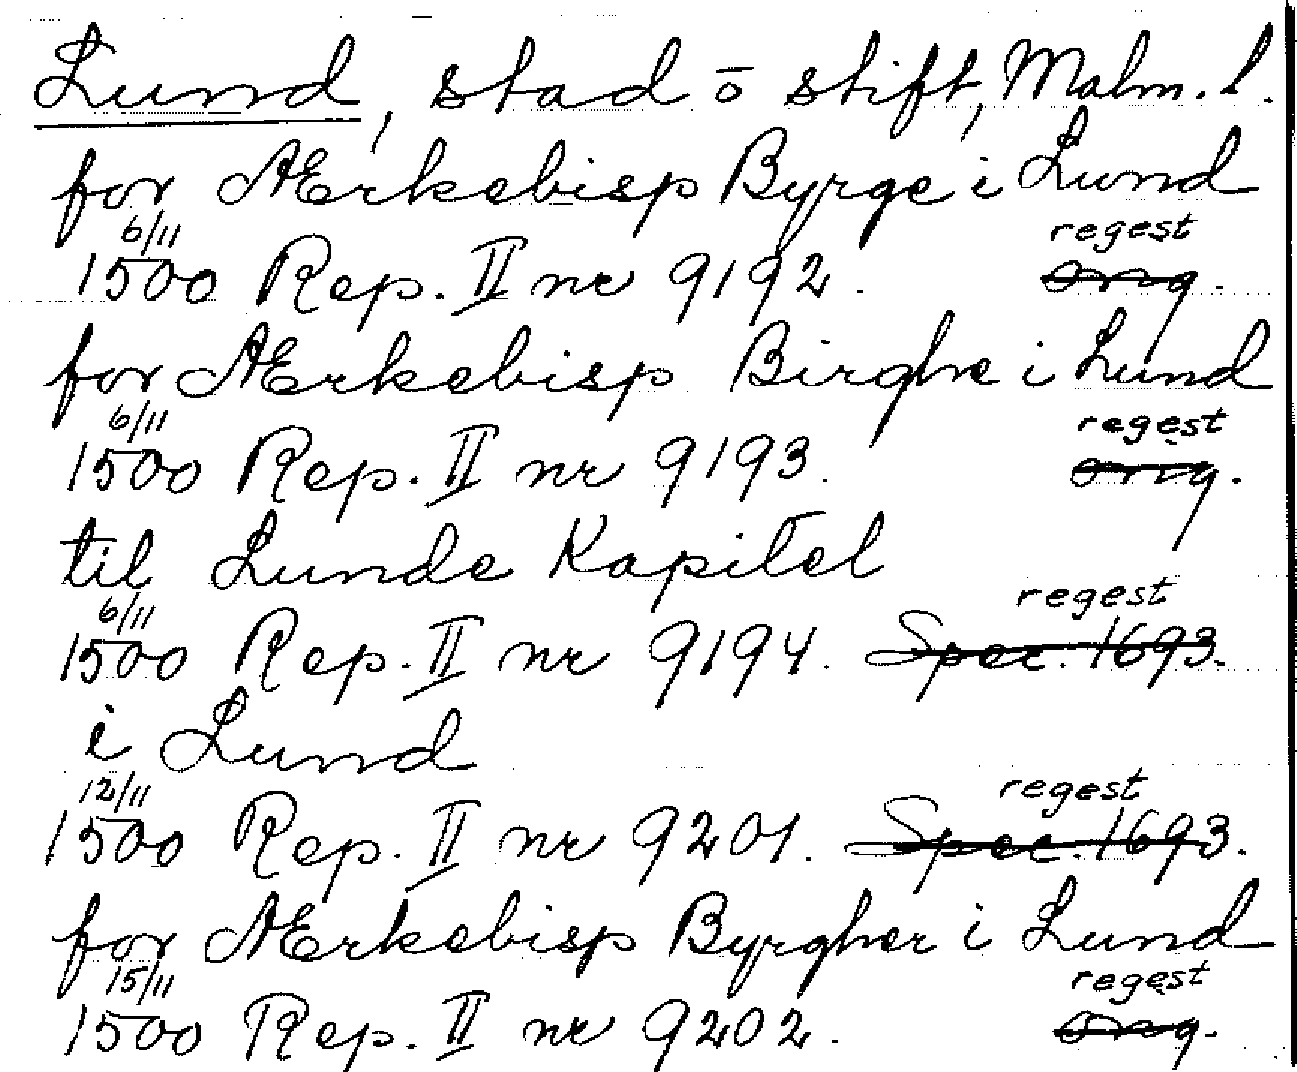 Lund, stad ō stift, Malm. l.
for Ærkebisp Byrge i Lund
6/11 regest
1500 Rep. II nr 9192. orig.
for Ærkebisp Birghe i Lund
6/11 regest
1500 Rep. II nr 9193. orig.
til Lunde Kapitel
6/11 regest
1500 Rep. II nr 9194. Spec. 1693.
i Lund
12/11 regest
1500 Rep. II nr 9201. Spec. 1693.
for Ærkebisp Byrgher i Lund
15/11 regest
1500 Rep. II nr 9202. orig.